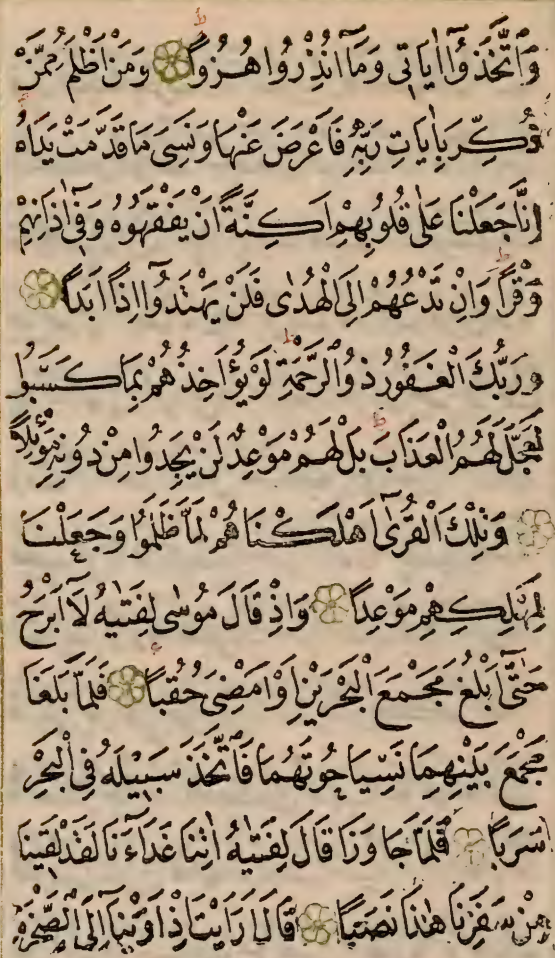 وَاتَّخَذُوٓا اٰيَاتِى وَمَآ اُنْذِرُوا هُزُواً وَمَنْ اَظْلَمُ مِمَّنْ
ذُكِّرَ بِاٰيَاتِ رَبِّهٖ فَاَعْرَضَ عَنْهَا وَنَسِىَ مَا قَدَّمَتْ يَدَاهُ
اِنَّا جَعَلْنَا عَلٰى قُلُوبِهِمْ اَكِنَّةً اَنْ يَفْقَهُوهُ وَفٖٓى اٰذَانِهِمْ
وَقْراً وَاِنْ تَدْعُهُمْ اِلَى الْهُدٰى فَلَنْ يَهْتَدُٓوا اِذاً اَبَداً
وَرَبُّكَ الْغَفُورُ ذُو الرَّحْمَةِ لَوْ يُؤَاخِذُهُمْ بِمَا كَسَبُوا
لَعَجَّلَ لَهُمُ الْعَذَابَ بَلْ لَهُمْ مَوْعِدٌ لَنْ يَجِدُوا مِنْ دُونِهٖ مَوْئِلاً
وَتِلْكَ الْقُرٰٓى اَهْلَكْنَاهُمْ لَمَّا ظَلَمُوا وَجَعَلْنَا
لِمَهْلِكِهِمْ مَوْعِداً وَاِذْ قَالَ مُوسٰى لِفَتٰيهُ لَٓا اَبْرَحُ
حَتّٰٓى اَبْلُغَ مَجْمَعَ الْبَحْرَيْنِ اَوْ اَمْضِىَ حُقُباً فَلَمَّا بَلَغَا
مَجْمَعَ بَيْنِهِمَا نَسِيَا حُوتَهُمَا فَاتَّخَذَ سَبٖيلَهُ فِى الْبَحْرِ
سَرَباً فَلَمَّا جَاوَزَا قَالَ لِفَتٰيهُ اٰتِنَا غَدَٓاءَنَا لَقَدْ لَقٖينَا
مِنْ سَفَرِنَا هٰذَا نَصَباً قَالَ اَرَاَيْتَ اِذْ اَوَيْنَٓا اِلَى الصَّخْرَةِ